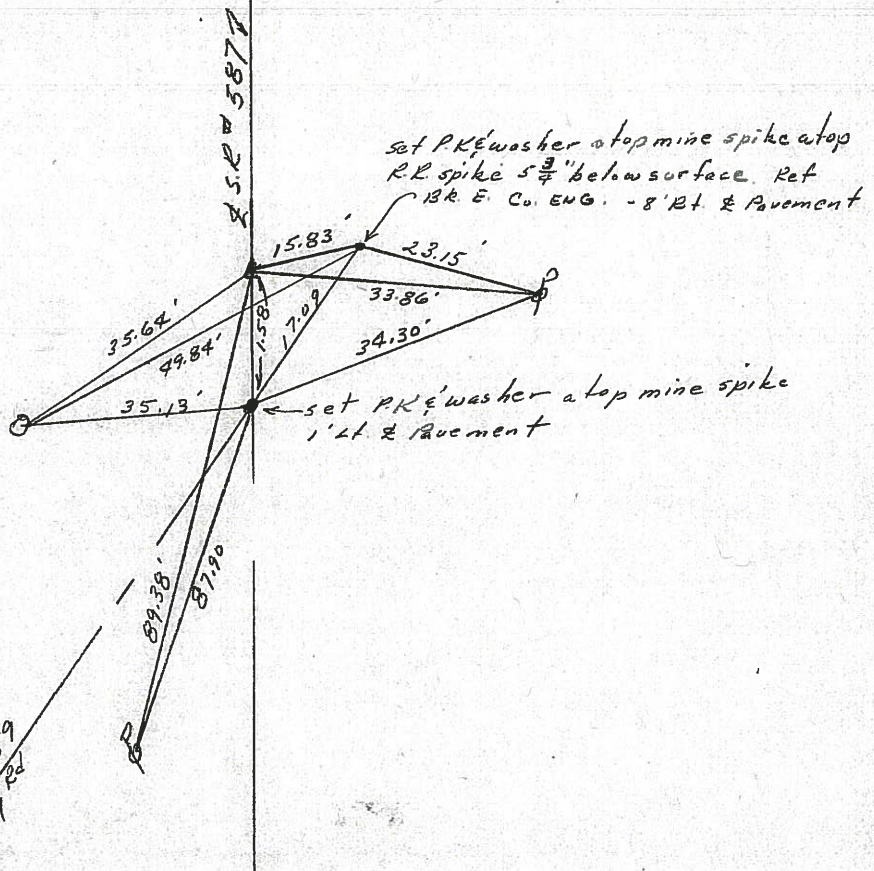 ℄ S.R # 587
set P.K & washer atop mine spike atop
R.R. spike 5 3/4" below surface. Ref
BK. E. Co. ENG. - 8' Rt. ℄ Pavement
15.83'
23.15'
33.86'
35.64'
49.84'
1.58'
17.09
34.30'
35.13'
set P.K & washer atop mine spike
1' Lt. ℄ Pavement
89.38'
87.90
P
P
9
Rd